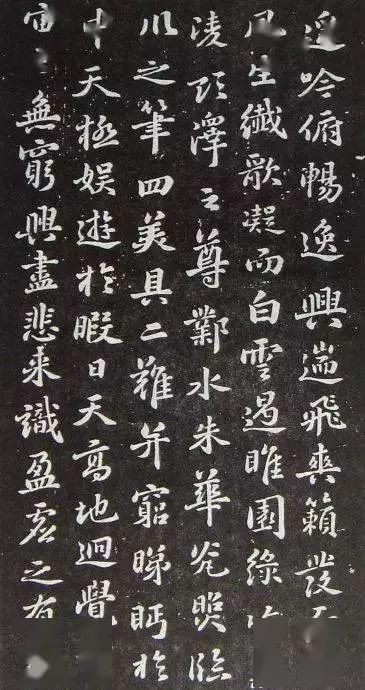 遥吟俯暢逸興遄飛爽籟發
風生纖歌凝而白雲遏睢園綠
凌彭澤之尊鄴水朱華光照臨
川之筆四美具二難并窮睇眄於
中天極娱遊於暇日天高地迥覺
宙之無窮興盡悲来識盈虛之有